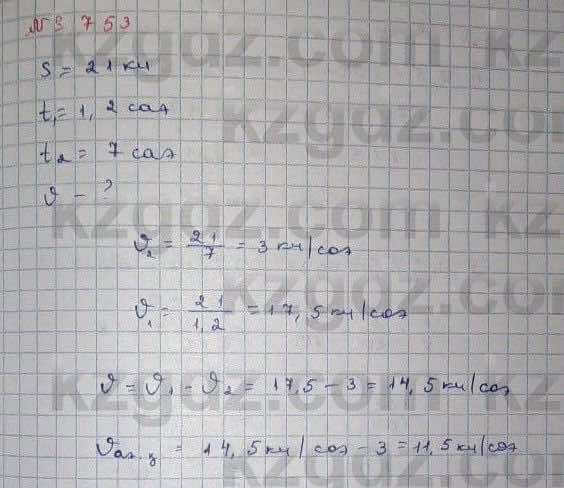 N 3 753
S = 21 км
t₁ = 1,2 сағ
t₂ = 7 сағ
v - ?
v₂ = 21/7 = 3 км/сағ
v₁ = 21/1,2 = 17,5 км/сағ
v = v₁ - v₂ = 17,5 - 3 = 14,5 км/сағ
= 14,5 км/сағ - 3 = 11,5 км/сағ
kzgdz.com